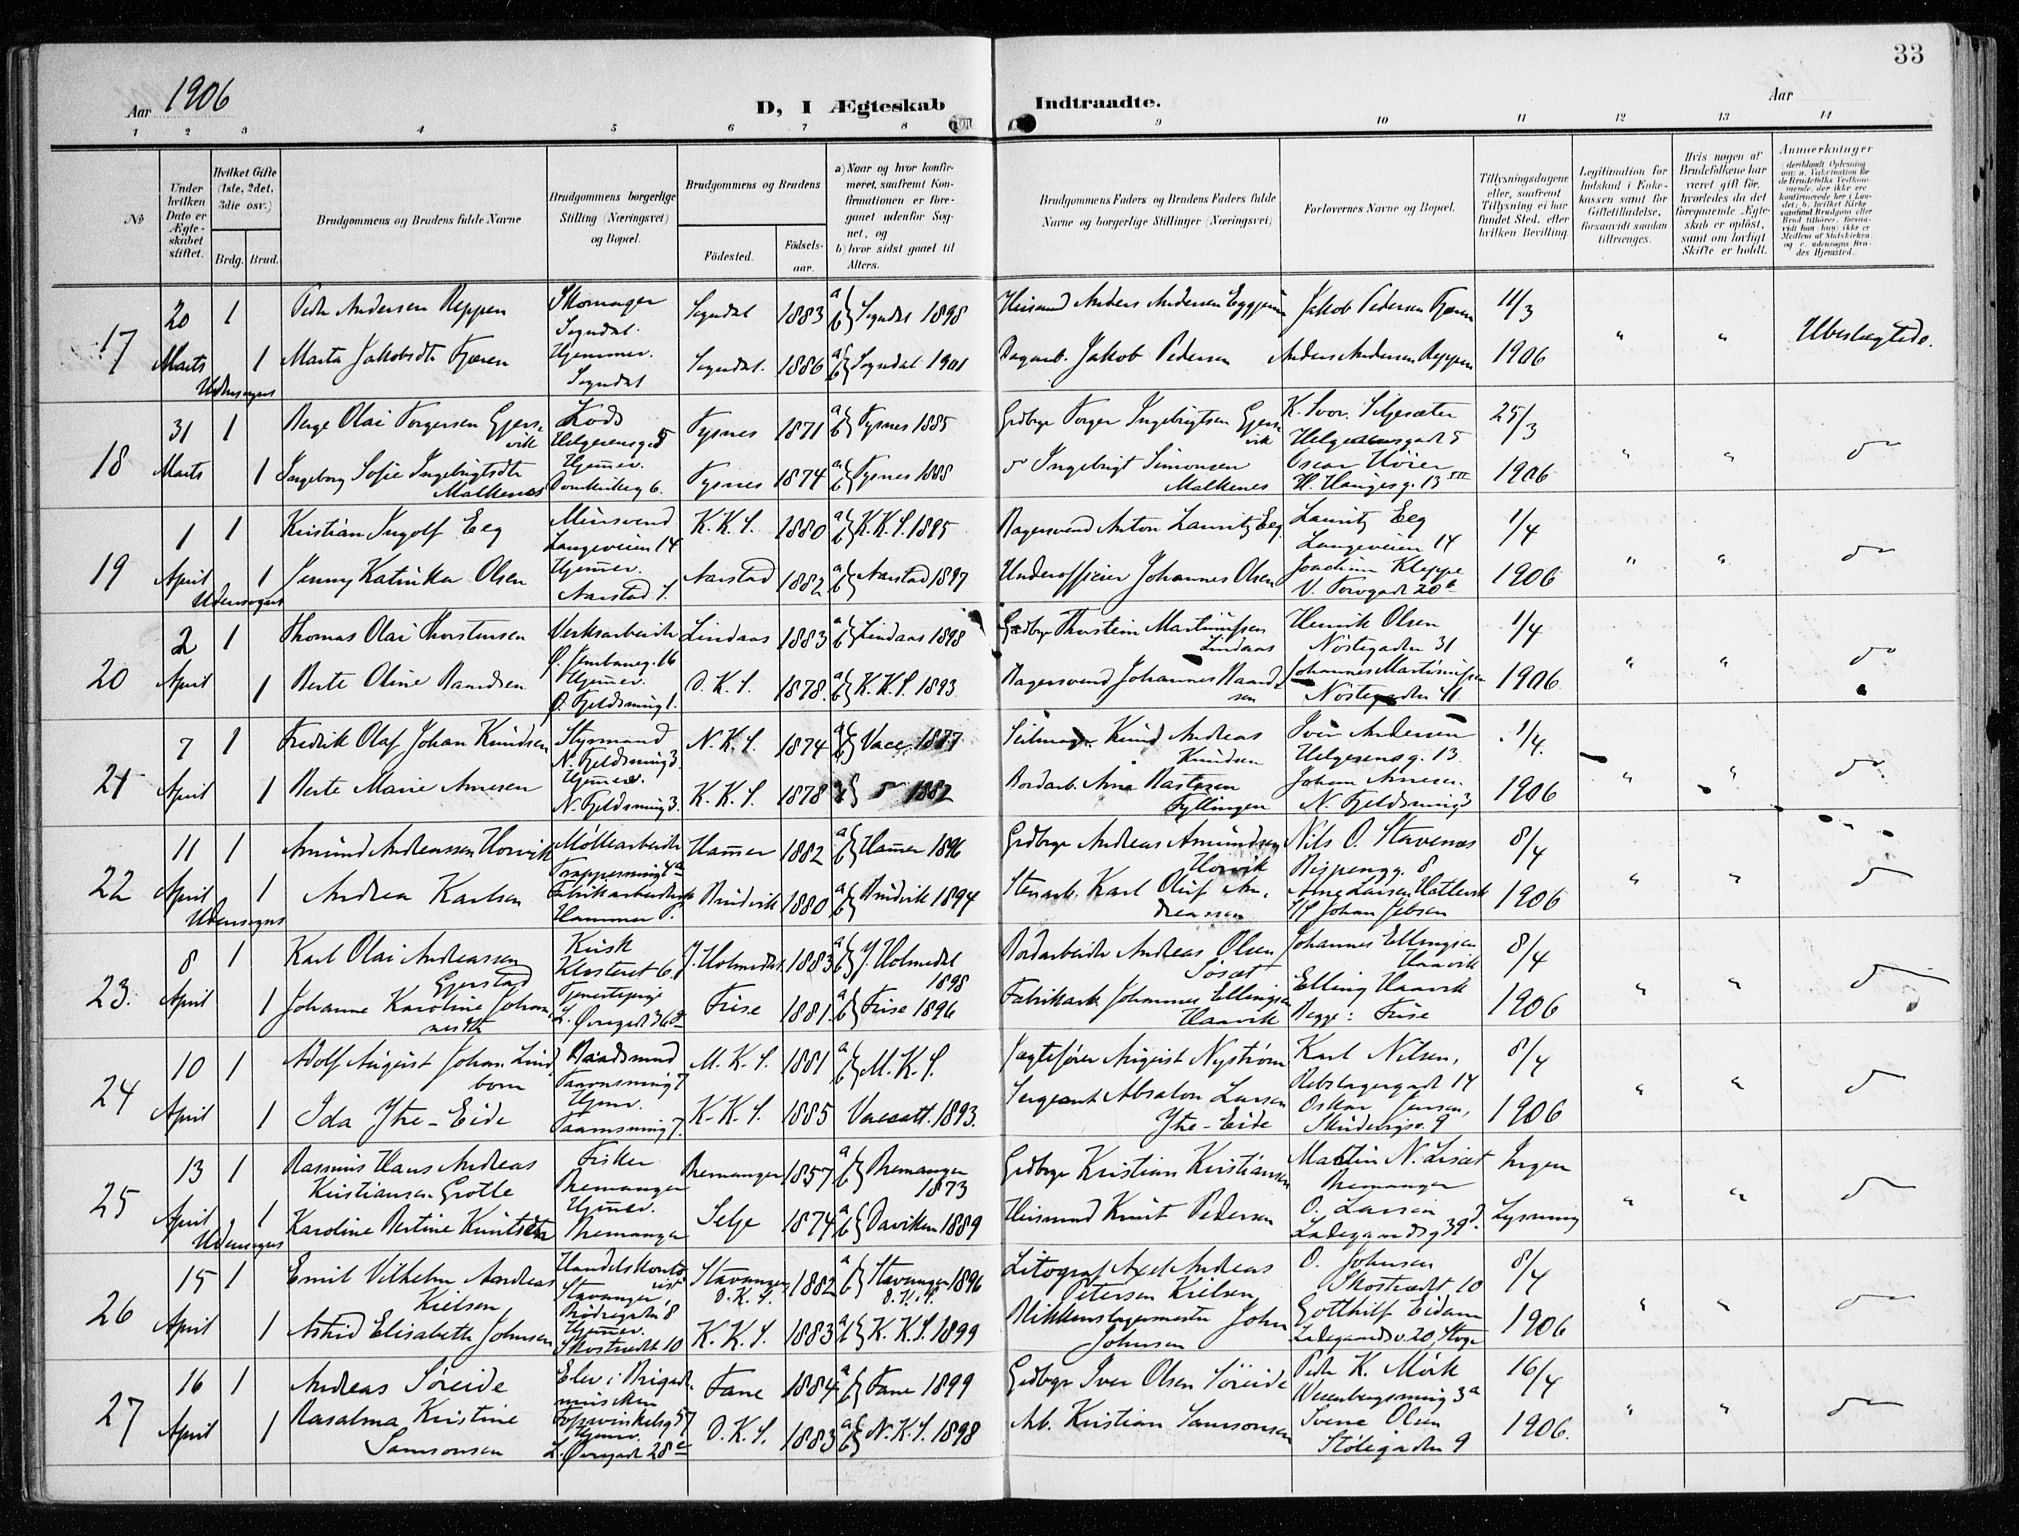 33
Aar 1906
D, I Ægteskab Indtraadte.
Aar
1 2 3 4 5 6 7 8 9 10 11 12 13 14
№
Under hvilken Dato er Ægteskabet stiftet.
Hvilket Gifte (1ste, 2det, 3die osv.)
Brdg. Brud.
Brudgommens og Brudens fulde Navne
Brudgommens borgerlige Stilling (Næringsvei) og Bopæl.
Brudgommens og Brudens
Fødested. Fødselsaar.
a) Naar og hvor konfirmeret, saafremt Konfirmationen er foregaaet udenfor Sognet, og
b) hvor sidst gaaet til Alters.
Brudgommens Faders og Brudens Faders fulde Navne og borgerlige Stillinger (Næringsvei)
Forlovernes Navne og Bopæl.
Tillysningsdagene eller, saafremt Tillysning ei har fundet Sted, efter hvilken Bevilling
Legitimation for Indskud i Enkekassen samt for Giftetilladelse, forsaavidt saadan tiltrænges.
Hvis nogen af Brudefolkene har været gift før, hvorledes da det foregaaende Ægteskab er opløst, samt om lovligt Skifte er holdt.
Anmærkninger
17 20 1 Peder Andersen Reppen Skomager Sogndal. Sogndal 1883 a b Sogndal 1898 Husmand Anders Andersen Jakob Pedersen Fjæren 11/3
Marts 1 Marta Jakobsdtr Fjæren Hjemmev. Sogndal Sogndal. 1886 a b Sogndal 1901 Dagarb. Jakob Pedersen Anders Andersen Reppen 1906 " " Ubeslægtede.
Udensogns
18 31 1 Berge Olai Torgersen Gjersvik Kods Helgesensg. 5 Tysnes 1871 a b Tysnes 1885 Grdbrgr Torger Ingebrigtsen Gjersvik K. Svor. Siljesæter Helgesensgadt 5 25/3
Marts 1 Ingeborg Sofie Ingebrigtsdtr Malkenes Hjemmev. Domkirkeg 6. Tysnes 1874 a b Tysnes 1888 Ingebrigt Simonsen Malkenes Oscar Høier H. Haugesg. 13 1906 " " do
19 1 1 Kristian Ingolf Eeg Mursvend Langeveien 14 K.K.S. 1880 a b K.K.S. 1895 Bagersvend Anton Lauritz Eeg Lauritz Eeg Langeveien 14 1/4
April 1 Jenny Katinka Olsen Hjemmev. Aarstad S. Aarstad 1882 a b Aarstad 1897 Underofficier Johannes Olsen Joachim Kleppe V. Torvgadt 20b 1906 " " do
Udensogns
20 2 1 Thomas Olai Thorstensen Verksarbeider Ø. 16 Lindaas 1883 a b Lindaas 1898 Grdbrgr Thorstein Martinussen Lindaas Henrik Olsen Nøstegaden 31 1/4
April 1 Berte Oline Raandsen Hjemmev. Ø. Fjeldsmug 1. D.K.S. 1878. a b K.K.S. 1893 Bagersvend Johannes Raandsen Johannes Martinussen Nøstegaden 41. 1906 " " do
21 7 1 Fredrik Olaf Johan Knudsen Styrmand N. Fjeldsmug 3. N.K.S. 1874 a b Vacc. 1877 Knud Andreas Knudsen Iver Andersen Helgesensg. 13. 1/4.
April 1 Berte Marie Arnesen Hjemmev. N. Fjeldsmug 3. K.K.S. 1878 do 1882 Bordarb. Arne Fyllingen Johan Arnesen N. Fjeldsmug 3 1906 " " do
22 11 1 Amund Andreassen Horvik Møllearbeider Trappesmug 4a Hammer 1882 a b Hammer 1896 Grdbrgr Andreas Amundsen Horvik Nils O. Stavenæs Bispengg. 8 8/4
April 1 Andrea Karlsen Fabrikarbeiderske Hammer P. Bruvik 1880 a b Bruvik 1894 Stenarb. Karl Oluf Andreassen Arne Larsen Hatlevik Johan Jebsen 1906 " " do
Udensogns
23. 8 1 Karl Olai Andreassen Gjerstad Kusk Klosteret 6. Y. Holmedal 1883 a b Y. Holmedal 1898 Bordarbeider Andreas Olsen Johannes Ellingsen Haavik 8/4
April 1 Johanne Karoline Johannesdtr Tjenestepige L. Øvregadt 36 Fuse 1881. a b Fuse 1896 Fabrikarb. Johannes Ellingsen Haavik Elling Haavik Begge: Fuse 1906 " " do
24 10 1 Adolf August Johan Lindbom Baadsmand Taarnsmug 7 M.K.S. 1881 a b M.K.S. Jagtefører August Nystrøm Karl Nilsen, Rebslagergadt 14 8/4
April 1 Ida Ytre-Eide Hjemv. Taarnsmug 7. K.K.S. 1885 Vaccatt. 1893. Sergeant Absalon Larsen Ytre-Eide Oskar Jensen, 9 1906 " " do
25 13 1 Rasmus Hans Andreas Kristiansen Grotle Fisker Bremanger Bremanger 1857 a b Bremanger 1873 Grdbrgr Kristian Kristiansen Martin N. Liset Bremanger Ingen
April 1 Karoline Bertine Knutsdtr Hjemmev. Bremanger Selje 1874 a b Daviken 1889 Husmand Knut Pedersen O. Larsen Ladegaardsg 39d. Lysning " " do
Udensogns
26 15 1 Emil Vilhelm Andreas Kielsen Handelskontorist Stavanger, 8 Stavanger D.K.S. 1882 a b Stavanger 1896 Litograf Axel Andreas Petersen Kielsen O. Johnsen Skostrædt 10 8/4
April 1 Astrid Elisabeth Johnsen Hjemmev. Skostrædt 10 K.K.S. 1883 a b K.K.S. 1899 Blikkenslagermester John Johnsen Gotthilf Eidam Ladegaardsv. 20, 1906 " " do
27 16 1 Andreas Søreide Elev i Brigademusikken Fosswinkelsg 57 Fane 1884 a b Fane 1899 Grdbrgr Iver Olsen Søreide Peder K. Mørk Wesenbergsmug 3a 16/4
April 1 Rasalma Kristine Samsonsen Hjemv. L. Øvregadt 28c D.K.S. 1883 a b N.K.S. 1898 Arb. Kristian Samsonsen Olsen Stølegaden 9 1906. " " do